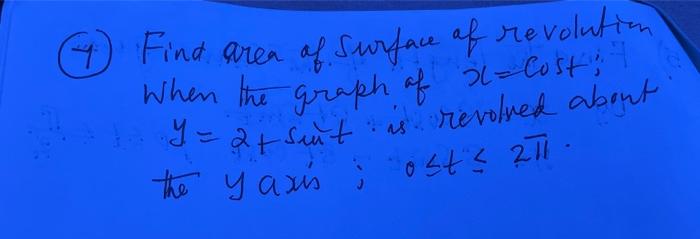 (4) Find area of surface of revolution
When the graph of x = Cost;
y = 2 + sin t is revolved about
the y axis; 0 ≤ t ≤ 2π.